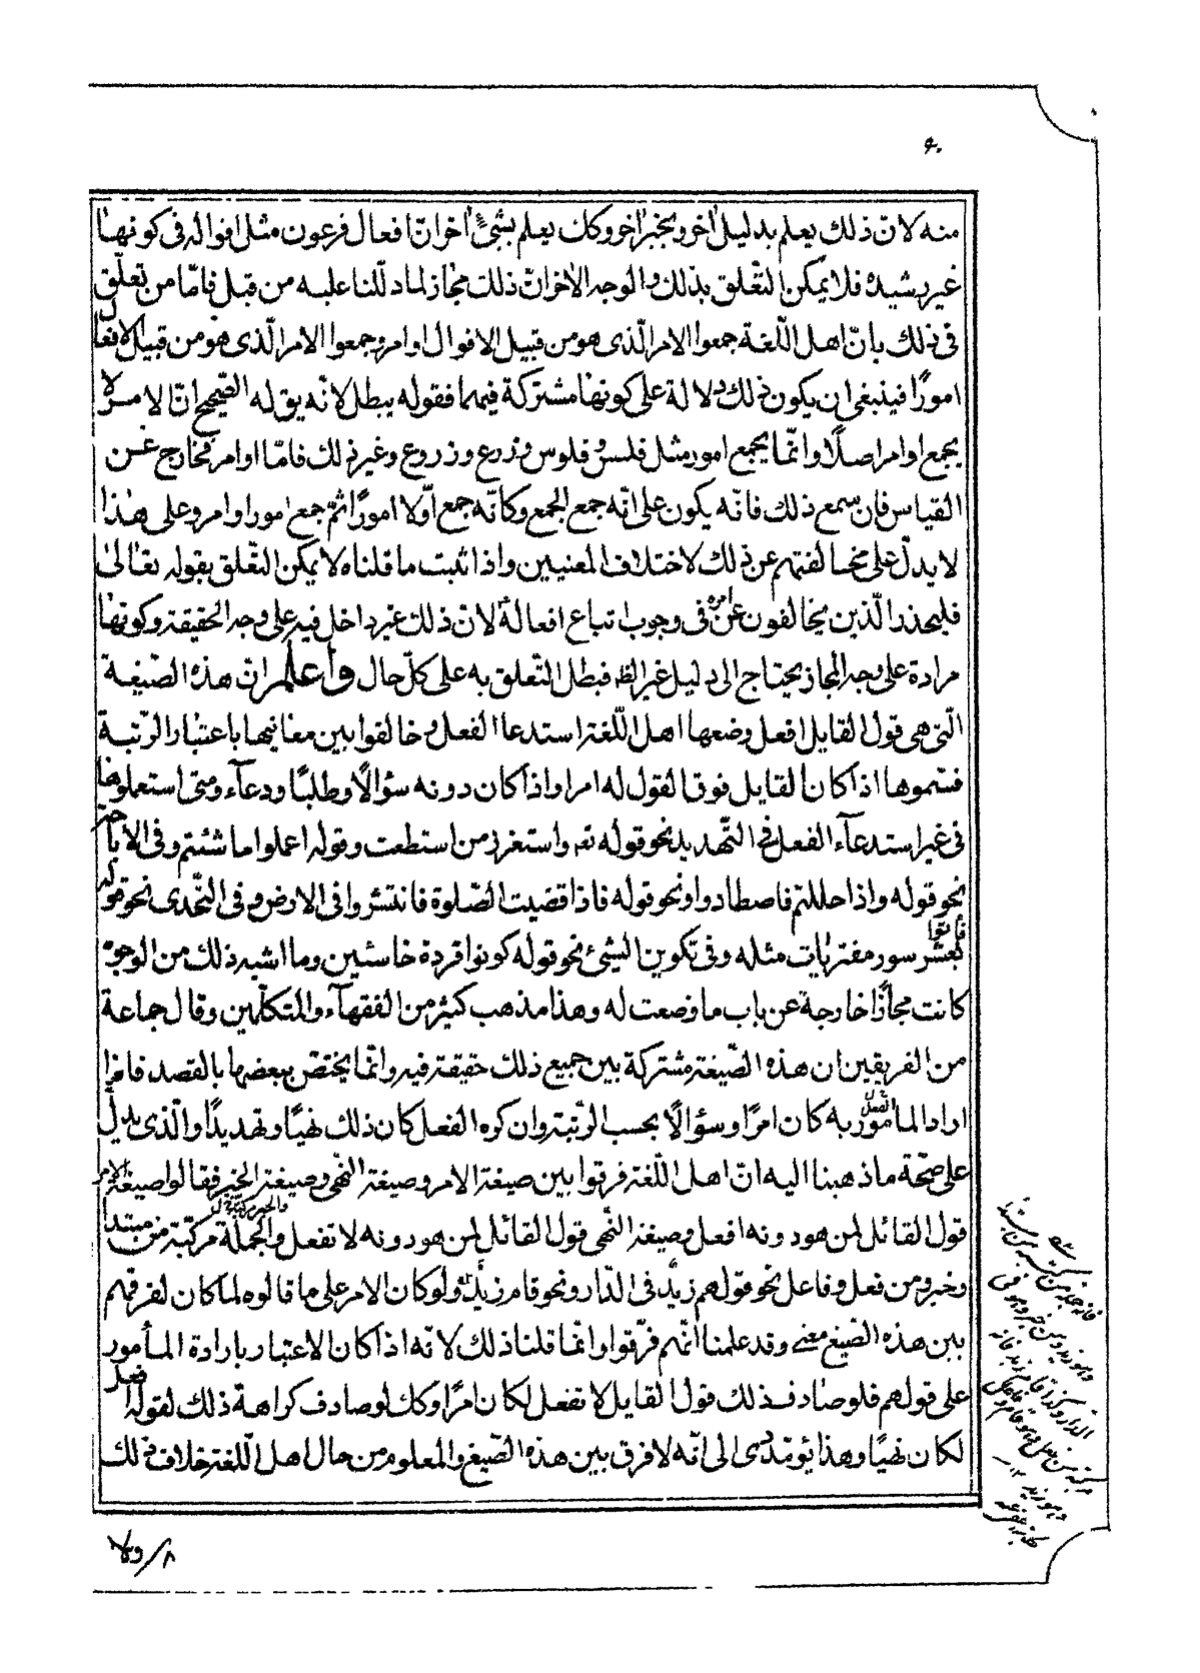 منه لانّ ذلك يعلم بدليل اخر وبخبر اخر وكان يعلم بشئ اخر انّ افعال فرعون مثل اقواله فى كونها
غير رشيدة فلا يمكن التعلّق بذلك والوجه الاخر انّ ذلك مجاز لما دلّلنا عليه من قبل فامّا من تعلّق
فى ذلك بانّ اهل اللّغة جمعوا الامر الّذى هو من قبيل الاقوال اوامر وجمعوا الامر الّذى هو من قبيل الافعال
امورًا فينبغى ان يكون ذلك دلالة على كونها مشتركة فيهما فقوله يبطل لانّه يق له الصّحيح انّ الامر لا
يجمع اوامر اصلًا وانّما يجمع امور مثل فلس وفلوس وزرع وزروع وغير ذلك فامّا اوامر فخارج عن
القياس فان سمع ذلك فانّه يكون على انّه جمع الجمع وكانّه جمع اوّلا امورًا ثمّ جمع امورا اوامر وعلى هذا
لا يدلّ على مخالفتهم عن ذلك لاختلاف المعنيين واذا ثبت ما قلناه لا يمكن التعلّق بقوله تعالى
فليحذر الّذين يخالفون عن امره فى وجوب اتباع افعاله لانّ ذلك غير داخل فيه على وجه الحقيقة وكونها
مرادة على وجه المجاز يحتاج الى دليل غير الظ فبطل التّعلق به على كلّ حال واعلم انّ هذه الصّيغة
الّتى هى قول القايل افعل وضعها اهل اللّغة استدعا الفعل وخالفوا بين معانيها باعتبار الرّتبة
فسّموها اذا كان القايل فوق المقول له امرا واذا كان دونه سؤالًا وطلبًا ودعاء ومتى استعملوها
فى غير استدعاء الفعل فى التّهديد نحو قوله تع واستفزز من استطعت وقوله اعملوا ما شئتم وفى الاباحة
نحو قوله واذا حللتم فاصطادوا ونحو قوله فاذا قضيت الصّلوة فانتشروا فى الارض وفى التّحدى نحو قوله
فاتوا بعشر سور مفتريات مثله وفى تكوين الشئ نحو قوله كونوا قردة خاسئين وما اشبه ذلك من الوجوه
كانت مجازًا خارجة عن باب ما وضعت له وهذا مذهب كثير من الفقهاء والمتكلّمين وقال جماعة
من الفريقين ان هذه الصّيغة مشتركة بين جميع ذلك حقيقة فيه وانّما يختصّ ببعضها بالقصد فاذا
اراد المأمور به كان امرًا وسؤالًا بحسب الرّتبة وان كره الفعل كان ذلك نهيًا وتهديدًا والّذى يدلّ
على صحّة ما ذهبنا اليه انّ اهل اللّغة فرقوا بين صيغة الامر وصيغة النّهى وصيغة الخبر فقالوا صيغة الامر
قول القائل لمن هو دونه افعل وصيغة النّهى قول القائل لمن هو دونه لا تفعل والجملة مركّبة من مبتدا
وخبر ومن فعل وفاعل نحو قولهم زيد فى الدّار ونحو قام زيد ولو كان الامر على ما قالوه لما كان لفرقهم
بين هذه الصّيغ معنى وقد علمنا انّهم فرّقوا وانّما قلنا ذلك لانّه اذا كان الاعتبار بارادة المأمور
على قولهم فلو صادف ذلك قول القايل لا تفعل لكان امرًا وكك لو صادف كراهة ذلك لقوله افعل
لكان نهيًا وهذا يؤدّى الى انّه لا فرق بين هذه الصّيغ والمعلوم من حال اهل اللّغة خلاف ذلك